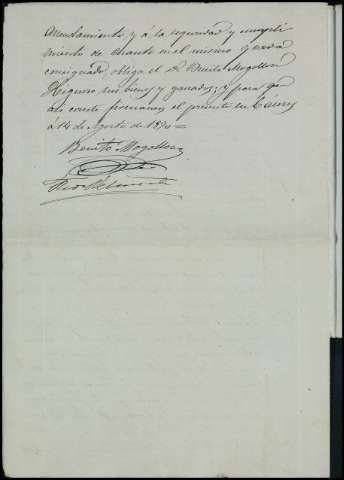 Arrendamiento, y á la seguridad y cumpli
miento de cuanto en el mismo queda
consignado, obliga el D. Benito Mogollon
Higuero sus bienes y ganados; y para que
asi conste firmamos el presente en Cáceres
á 14 de Agosto de 1874 =
Benito Mogollon